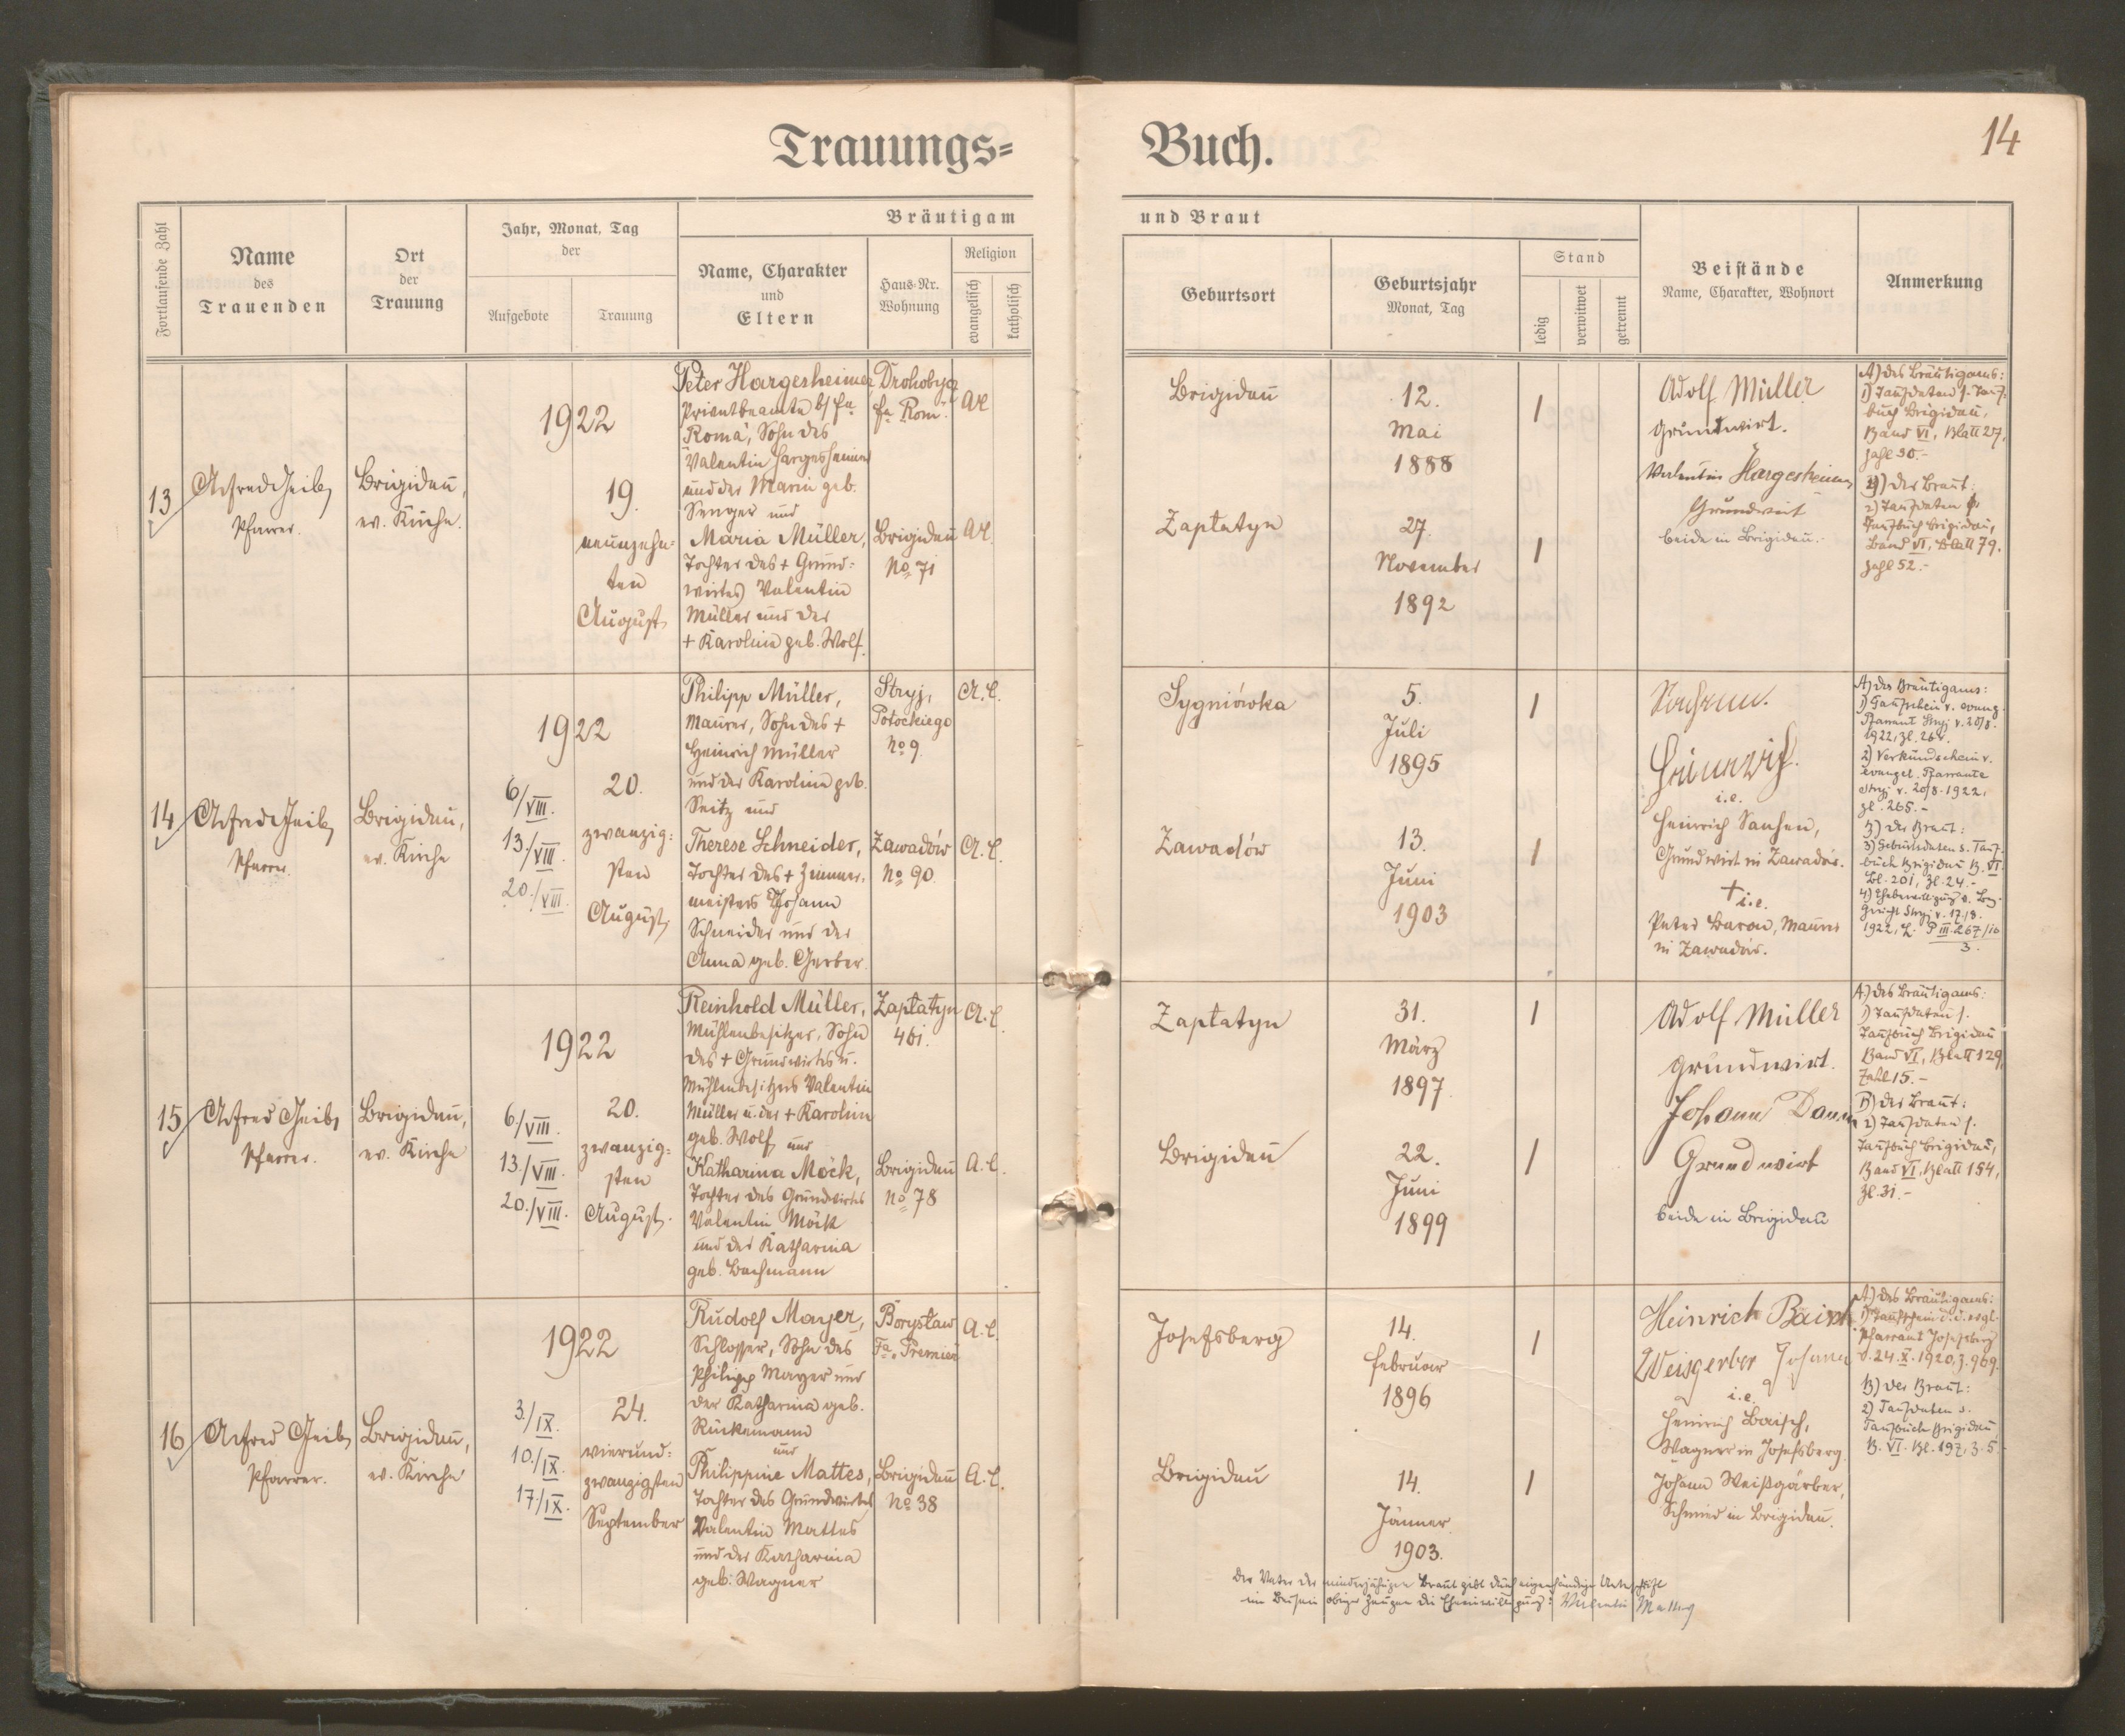 Trauungs= Buch.
14
Fortlaufende Zahl
Name
des
Trauenden
Ort
der
Trauung
Jahr, Monat, Tag
der
Aufgebote
Trauung
Bräutigam
Name, Charakter
und
Eltern
Haus-Nr.
Wohnung
Religion
evangelisch
katholisch
und Braut
Geburtsort
Geburtsjahr
Monat, Tag
Stand
ledig
verwittwet
getrennt
Beistände
Name, Charakter, Wohnort
Anmerkung
13
Alfred Geib,
Pfarrer.
Brigidau,
ev. Kirche.
1922
19.
neunzehn=
ten
August
Peter Hargesheimer
Privatbeamte b/ Fa
"Roma", Sohn des
Valentin Hargesheimer
und der Maria geb.
Senger und
Maria Müller,
Tochter des + Grund=
wirtes Valentin
Müller und der
+ Karolina geb. Wolf.
Drohobycz
Fa "Rom".
AC
Brigidau
No 71
AC.
Brigidau
12.
Mai
1888
1
Zaptatyn
27.
November
1892
1
Adolf Müller
Grundwirt.
Valentin Hargesheimer
Grundwirt
beide in Brigidau.-
A) des Bräutigams:
1) Taufdaten s. Tauf-
buch Brigidau,
Band VI, Blatt 27,
Zahl 30.-
B) der Braut:
2) Taufdaten s.
Taufbuch Brigidau,
Band VI, Blatt 79.
Zahl 52.-
14
Alfred Geib,
Pfarrer.
Brigidau,
ev. Kirche
1922
6/VIII.
13./VIII.
20./VIII.
20.
zwanzig=
sten
August
Philipp Müller,
Maurer, Sohn des +
Heinrich Müller
und der Karolina geb.
Seitz und
Therese Schneider,
Tochter des + Zimmer-
meisters Johann
Schneider und der
Anna geb. Gerber.
Stryj,
Potockiego
No 9.
A.C.
Zawadów
No 90.
A.C.
Sygniówka
5.
Juli
1895
1
Zawadów
13.
Juni
1903
1
i.e.
Heinrich Sauhen,
Grundwirt in Zawadów.
+
i.e.
Peter Baron, Maurer
in Zawadów.
A) des Bräutigams:
1) Taufschein v. evang.
Pfarramt Stryj v. 20/8.
1922, Zl. 264.
2) Verkündschein v.
evangel. Pfarramte
Stryj v. 20/8. 1922,
Zl. 265.-
B) der Braut:
3) Geburtsdaten s. Tauf-
buch Brigidau B. VI.
Bl. 201, Zl. 24.-
4) Ehebewilligung v. Bez.
Gericht Stryj v. 17./8.
1922, L. P III 267/10
3.
15
Alfred Geib,
Pfarrer.
Brigidau,
ev. Kirche
1922
6./VIII.
13./VIII.
20./VIII.
20.
zwanzig=
sten
August.
Reinhold Müller,
Mühlenbesitzer, Sohn
des + Grundwirtes u.
Mühlenbesitzers Valentin
Müller u. der + Karolina
geb. Wolf und
Katharina Möck,
Tochter des Grundwirtes
Valentin Möck
und der Katharina
geb. Bachmann
Zaptatyn
461.
A.C.
Brigidau
No 78
A.C.
Zaptatyn
31.
März
1897
1
Brigidau
22.
Juni
1899
1
Adolf Müller
Grundwirt.
Johann Damm
Grundwirt
beide in Brigidau
A.) des Bräutigams:
1) Taufdaten s.
Taufbuch Brigidau
Band VI, Blatt 129,
Zahl 15.-
B) der Braut:
2) Taufdaten s.
Taufbuch Brigidau,
Band VI, Blatt 154,
Zl. 31.-
16
Alfred Geib,
Pfarrer.
Brigidau,
ev. Kirche
1922
3./IX.
10./IX.
17./IX.
24.
vierund=
zwanzigsten
September
Rudolf Mayer,
Schlosser, Sohn des
Philipp Mayer und
der Katharina geb.
Rückemann
und
Philippine Mattes,
Tochter des Grundwirtes
Valentin Mattes
und der Katharina
geb. Wagner
Borysław
Fa. "Premier"
A.C.
Brigidau
No 38
A.C.
Josefsberg
14.
Februar
1896
1
Brigidau
14.
Jänner
1903.
1
Heinrich Baisch
Weisgerber Johann
i.e.
Heinrich Baisch,
Wagner in Josefsberg.
Johann Weißgärber,
Schmied in Brigidau.
A) des Bräutigams:
1) Taufschein d. d. evgl.
Pfarramt Josefsberg
v. 24. X. 1920, Z. 969.
B) der Braut:
2) Taufdaten s.
Taufbuch Brigidau
B. VI. Bl. 197, Z. 5.
Der Vater der minderjährigen Braut gibt durch eigenhändige Unterschrift
im Beisein obiger Zeugen die Eheeinwilligung: Valentin Mattes